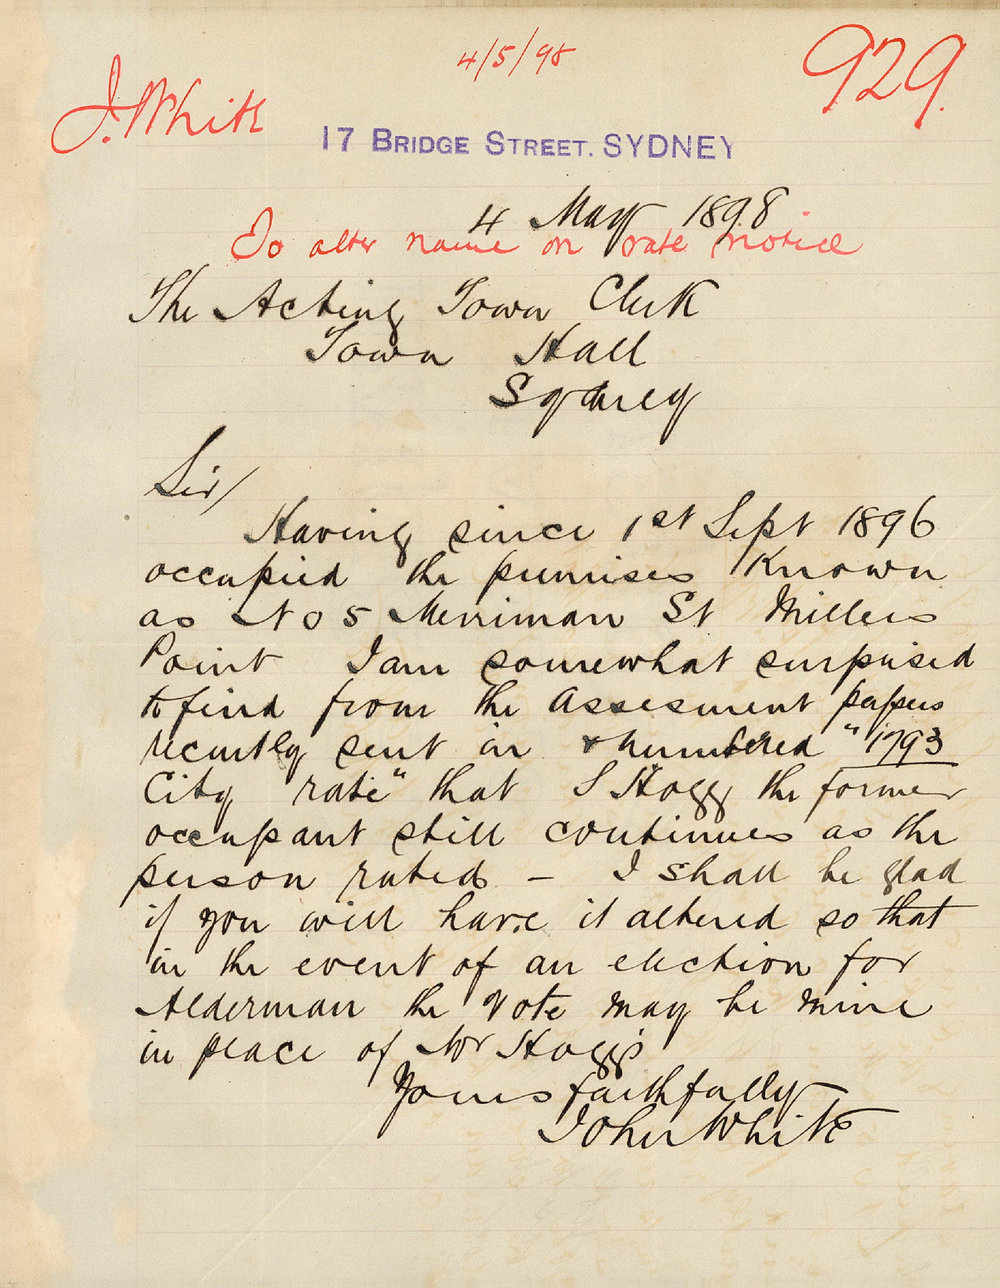 4/5/98
929.
J. White
17 BRIDGE STREET. SYDNEY
4 May 1898
To alter name on rate notice
The Acting Town Clerk
Town Hall
Sydney
Sir/
Having since 1st Sept 1896
occupied the premises Known
as No 5 Merriman St Millers
Point I am somewhat surprised
to find from the Assesment papers
recently sent in & numbered "1793
City rate" that S Hogg the former
occupant still continues as the
person rated - I shall be glad
if you will have it altered so that
in the event of an election for
Alderman the Vote may be mine
in place of Mr Hogg's
Yours faithfully
John White